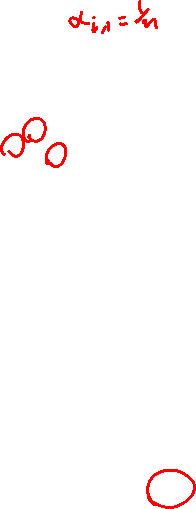 αi,1 = 1/n